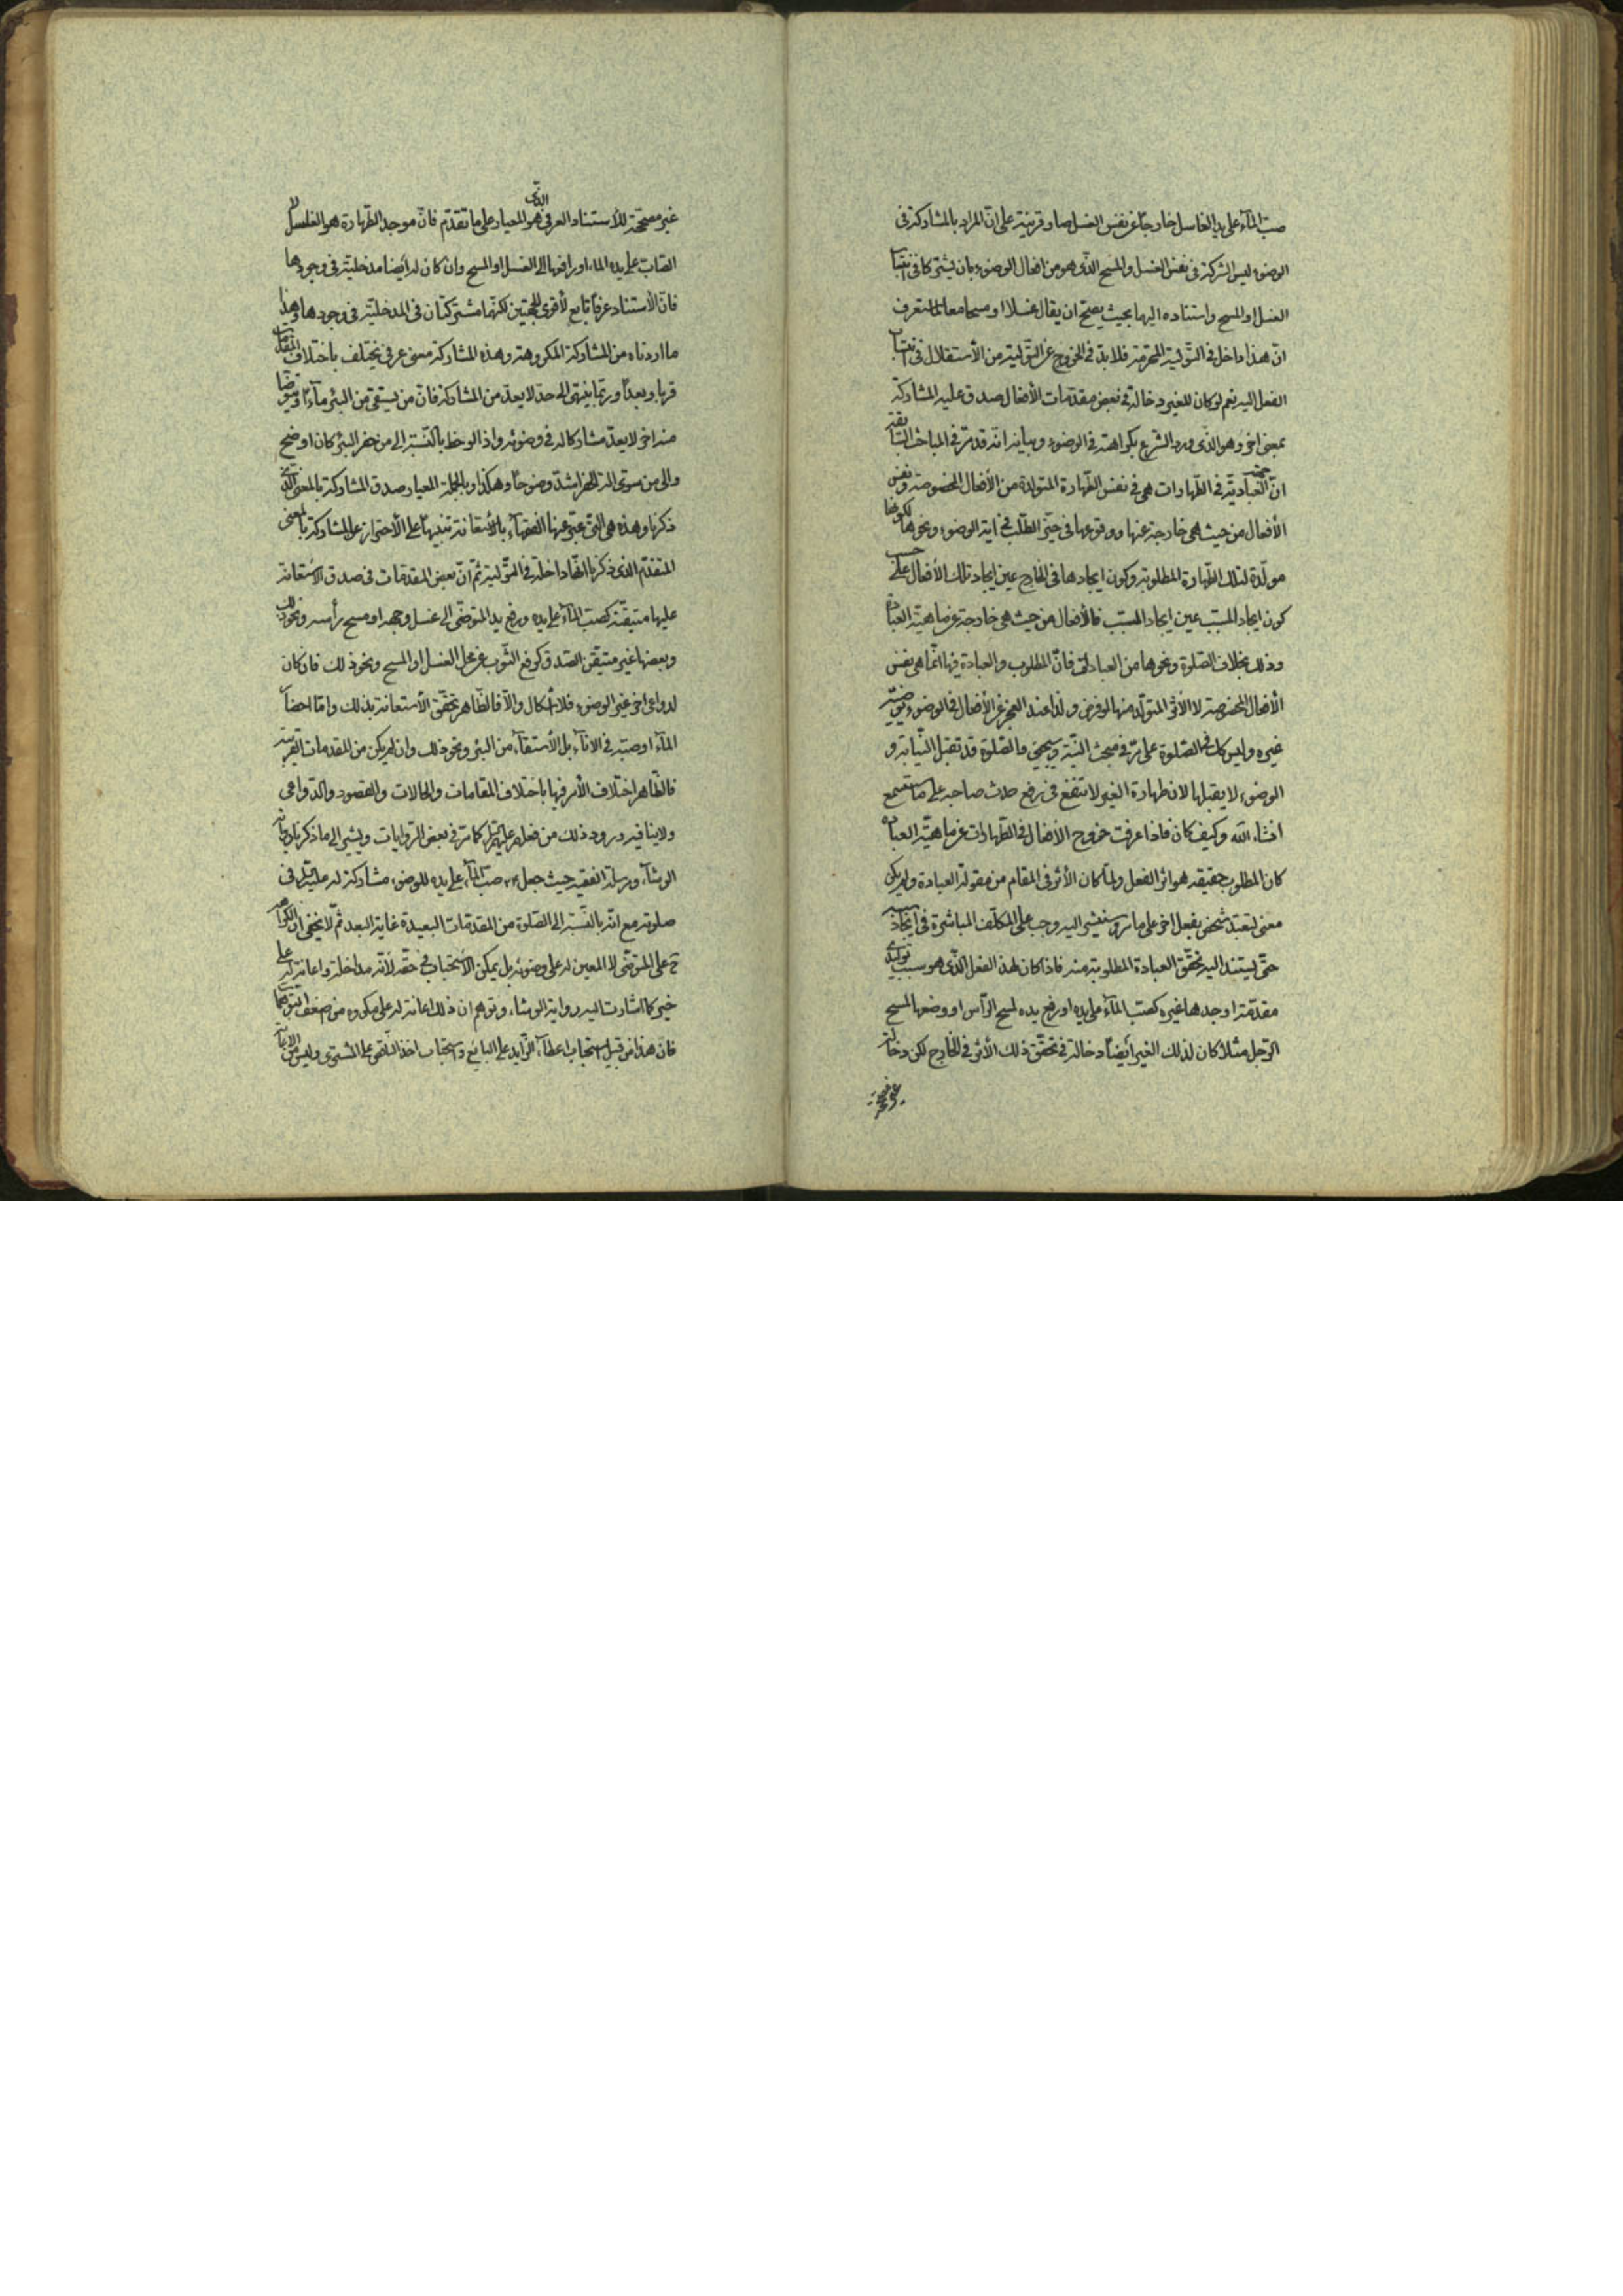 صبّ المآء على يد الغاسل خارجاً عن نفس الغسل صار قرينة على انّ المراد بالمشاركة فى
الوضوء ليس الشركة فى نفس الغسل والمسح الّذى هو من افعال الوضوء بان يشتركا فى انتساب
الغسل او المسح واستناده اليهما بحيث يصحّ ان يقال غسلا او مسحا معا لما ستعرف
انّ هذا داخل فى التّولية المحرّمة فلا بدّ فى الخروج عن التّولية من الأستقلال فى انتساب
الفعل اليه نعم لو كان للغير دخالة فى بعض مقدّمات الأفعال صدق عليه المشاركة
بمعنى اخر وهو الّذى ورد الشّرع بكراهته فى الوضوء وبيانه انّه قد مرّ فى المباحث السّابقة
انّ جهة العباديّة فى الطّهارات هى فى نفس الطّهارة المتولّدة من الأفعال المخصوصة ونفس
الأفعال من حيث هى خارجة عنها ووقوعها فى حيّز الطّلب فى اية الوضوء ونحوها لكونها
مولّدة لتلك الطّهارة المطلوبة وكون ايجادها فى الخارج عين ايجاد تلك الأفعال على حسب
كون ايجاد السّبب عين ايجاد المسبّب فالأفعال من حيث هى خارجة عن ماهيّة العبادة
وذلك بخلاف الصّلوة ونحوها من العبادات فانّ المطلوب والعبادة فيها انّما هى نفس
الأفعال المخصوصة لا الأثر المتولّد منها لو فرض ولذا عند العجز عن الأفعال فى الوضوء يوضّيه
غيره وليس كك فى الصّلوة على ما مرّ فى مبحث النّيّة وسيجئ فالصّلوة قد تقبل النّيابة و
الوضوء لا يقبلها لان طهارة الغير لا تنفع فى رفع حدث صاحبه على ما ستسمع
انشاء الله وكيف كان فاذا عرفت خروج الأفعال فى الطّهارات عن ماهيّة العبادة
كان المطلوب حقيقة هو اثر الفعل ولمّا كان الأثر فى المقام من مقولة العبادة ولم يكن
معنى لتعبّد شخص بفعل اخر على ما مرّ وسنشير اليه وجب على المكلّف المباشرة فى ايجاد سببه
حتّى يستند اليه تحقّق العبادة المطلوبة منه فاذا كان لهذا الفعل الّذى هو سبب توليدى
مقدّمة اوجدها غيره كصبّ المآء على يده او رفع يده لمسح الرّأس او وضعها لمسح
الرّجل مثلاً كان لذلك الغير أيضاً دخالة فى تحقّق ذلك الأثر فى الخارج لكن دخالة
غير مصحّحة للأستناد العرفى الّذى هو المعيار على ما تقدّم فانّ موجد الطّهارة هو الغاسل لا
الصّابّ على يده الماء او رافعها الى الغسل او المسح وان كان له أيضا مدخليّة فى وجودها
فانّ الأستناد عرفاً تابع لأقوى الجهتين لكنّهما مشتركتان فى المدخليّة فى وجودها وهذا
ما اردناه من المشاركة المكروهة وهذه المشاركة معنى عرفى يختلف باختلاف المقدّمات
قربا وبعداً وربّما ينتهى الى حدّ لا يعدّ من المشاركة فانّ من يستقى من البئر مآءً ويتوضّأ
منه اخر لا يعدّ مشاركا له فى وضوئه واذا لوحظ بالنّسبة الى من حفر البئر كان اوضح
والى من سوّى الة الحفر اشدّ وضوحاً وهكذا وبالجملة المعيار صدق المشاركة بالمعنى الّذى
ذكرنا وهذه هى الّتى عبّر عنها الفقهآء بالأستعانة تنبيهاً على الأحتراز عن المشاركة بالمعنى
المتقدّم الّذى ذكرنا انّها داخلة فى التّولية ثمّ انّ بعض المقدّمات فى صدق الأستعانة
عليها متيقّنة كصبّ المآء على يده ورفع يد المتوضّى الى غسل وجهه او مسح رأسه ونحو ذلك
وبعضها غير متيقّن الصّدق كرفع الثّوب عن محلّ الغسل او المسح ونحو ذلك فان كان
لدواعى اخر غير الوضوء فلا اشكال والّا فالظّاهر تحقّق الأستعانة بذلك وامّا احضار
المآء او صبّه فى الانآء بل الأستقآء من البئر ونحو ذلك وان لم يكن من المقدمات القريبة
فالظّاهر اختلاف الأمر فيها باختلاف المقامات والحالات والقصود والدّواعى
ولا ينافيه ورود ذلك من فعلهم عليهم السّلام كما مرّ فى بعض الرّوايات ويشير الى ما ذكرنا رواية
الوشّاء ومرسلة الفقيه حيث جعل صبّ المآء على يده للوضوء مشاركة له عليه السّلام فى
صلوته مع انّه بالنّسبة الى الصّلوة من المقدّمات البعيدة غاية البعد ثمّ لا يخفى انّ الكراهة
ح على المتوضّى لا المعين له على وضوئه بل يمكن الأستحباب فى حقّه لأنّه مداخلة واعانة له على
خير كما اشارت اليه رواية الوشاء وتوهم ان ذلك اعانة له على مكروه من ضعف التوهّمات
فان هذا من قبيل استحباب اعطآء الزّايد على البائع واستحباب اخذ النّاقص على المشترى وليس من الاعانة